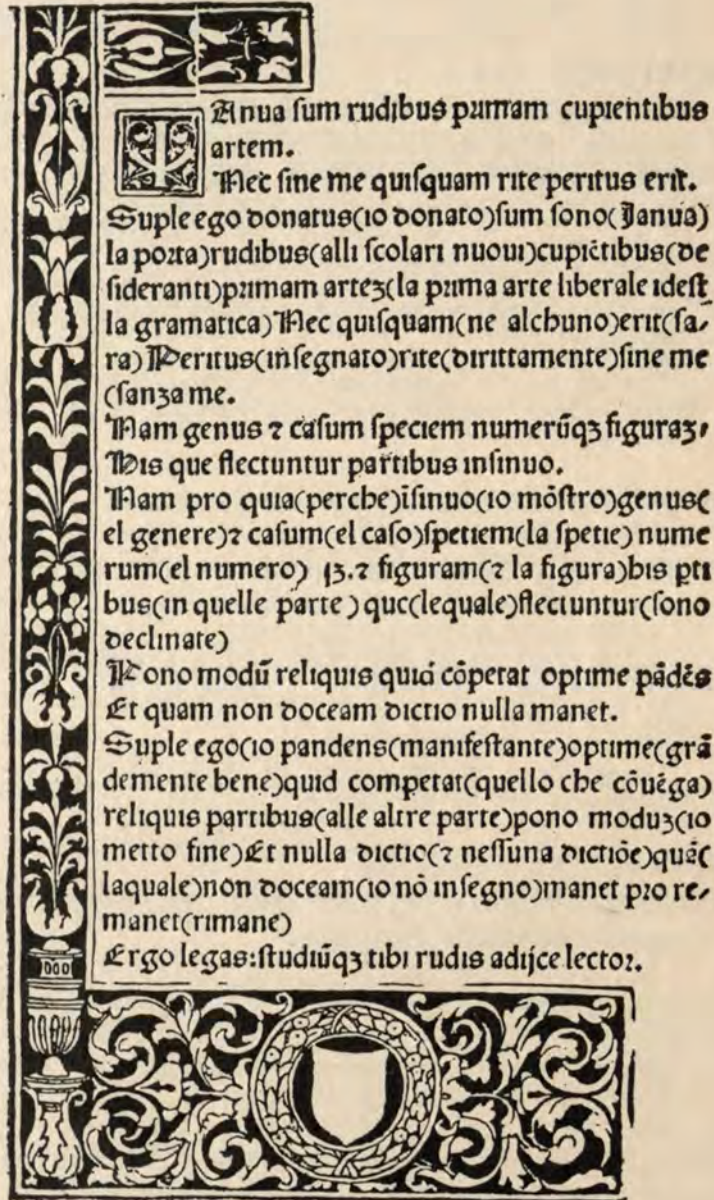 IAnua ſum rudibus primam cupientibus
artem.
Nec ſine me quiſquam rite peritus erit.
Suple ego donatus(io donato)ſum ſono(Janua)
la porta)rudibus(alli ſcolari nuoui)cupiẽtibus(de
ſideranti)primam arteʒ(la prima arte liberale ideſt
la gramatica)Nec quiſquam(ne alchuno)erit(ſa⸗
ra)Peritus(inſegnato)rite(dirittamente)ſine me
(ſanza me.
Nam genus ⁊ caſum ſpeciem numerũqʒ figuraʒ,
His que flectuntur partibus inſinuo.
Nam pro quia(perche)ĩſinuo(io mõſtro)genus(
el genere)⁊ caſum(el caſo)ſpetiem(la ſpetie)nume
rum(el numero) ⁊ figuram(⁊ la figura)his ꝑti
bus(in quelle parte)que(lequale)flectuntur(ſono
declinate)
Pono modũ reliquis quid cõpetat optime pãdẽs
Et quam non doceam dictio nulla manet.
Suple ego(io pandens(manifeſtante)optime(grã
demente bene)quid competat(quello che cõuẽga)
reliquis partibus(alle altre parte)pono moduʒ(io
metto fine)Et nulla dictio(⁊ neſſuna dictiõe)quã(
laquale)non doceam(io nõ inſegno)manet pro re⸗
manet(rimane)
Ergo legas:ſtudiũqʒ tibi rudis adijce lector.